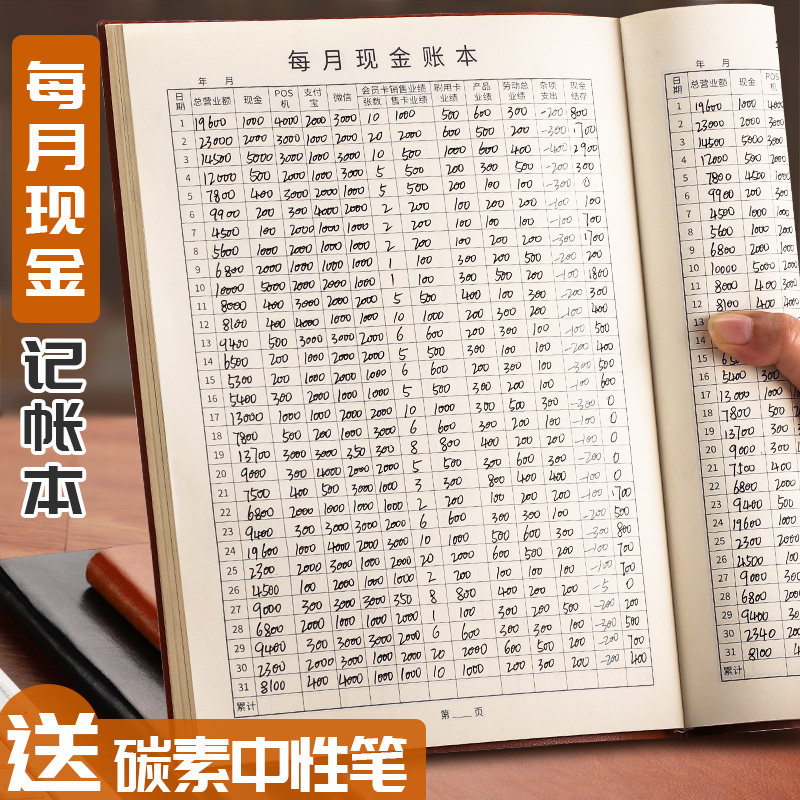 每月现金
记帐本
每月现金账本
年 月
日期 总营业额 现金 POS机 支付宝 微信 会员卡销售业绩 刷用卡业绩 产品业绩 劳动总业绩 杂项支出 现金结存
张数 售卡业绩
1 19600 1000 4000 2000 3000 10 1000 500 600 300 -200 800
2 23000 2000 3000 1000 2000 20 2000 600 500 200 -300 1700
3 14500 5000 3000 1000 3000 10 500 1000 600 400 -400 2900
4 12000 500 2000 1000 5 500 200 300 500 -200 300
5 7800 400 3000 2000 1000 5 500 200 100 100 -300 0
6 9900 200 300 4000 2000 2 200 100 200 200 -100 100
7 4500 100 2000 1000 1000 2 200 100 100 100 -100 700
8 5600 1000 2000 1000 1000 2 200 100 200 200 -300 1700
9 6800 2000 1000 1000 1000 1 100 300 200 500 -200
10 10000 5000 2000 2000 1000 1 100 300 500 200 -100 1800
11 8000 400 3000 2000 2000 5 500 400 100 300 -200 300
12 8100 400 4000 1000 1000 10 1000 200 200 200 -100 400
13 9400 500 3000 3000 2000 6 600 200 300 100 -100 500
14 6500 200 1000 2000 2000 5 500 300 100 100 -200 400
15 5300 200 1000 1000 1000 6 600 200 300 200 -300 500
16 5400 300 2000 1000 1000 5 500 300 500 100 -100 600
17 13000 1000 1000 2000 2000 10 1000 300 500 300 -300 0
18 7800 500 200 1000 3000 6 600 300 200 100 -100 0
19 13700 3000 3000 350 300 8 800 400 200 200 -100 0
20 9000 300 4000 2000 2000 5 500 300 600 300 -200 0
21 7500 400 500 3000 1000 3 300 800 400 400 -100 0
22 6800 2000 1000 1000 1000 2 200 100 200 200 -100 1700
23 9400 300 3000 3000 2000 6 600 300 200 100 -200 500
24 19600 1000 4000 2000 3000 10 1000 500 600 300 -300 800
25 2300 2000 3000 1000 2000 20 2000 600 500 200 -100 700
26 4500 100 2000 1000 1000 2 200 100 100 100 -100 700
27 9000 300 3000 3000 350 8 800 400 200 200 -5 0
28 6800 2000 1000 1000 2000 1 100 300 200 500 -200 200
29 9400 300 3000 3000 2000 6 600 300 300 100 -300 500
30 2300 2000 3000 1000 2000 20 2000 600 500 200 -200 700
31 8100 400 4000 1000 1000 10 1000 200 300 200 -200 400
累计
第 页
年 月
日期 总营业额 现金 POS机
1 19600 1000
2 23000 2000
3 14500 5000
4 12000 500
5 7800
6 9900 200
7 4500 100
8 5600 1000
9 6800 2000
10 10000 5000
11 8000 400
12 8100 400
13
15
16 5400 300
17 13000 1000
18 7800 500
19 13700 300
20 9000 300
21
22 6800 2000
23 9400 500
24 19600 1000
25 2300 2000
26 4500 100
27 9000 300
28 6800 2000
29 9400 300
30 2340 2000
31 8100 400
累计
送 碳素中性笔